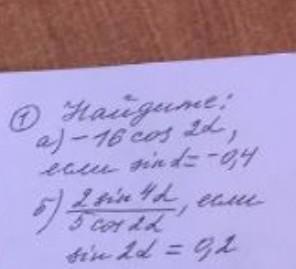 ① Найдите:
а) -16 cos 2α,
если sin α = -0,4
б) 2 sin 4α / 5 cos 2α, если
sin 2α = 0,2